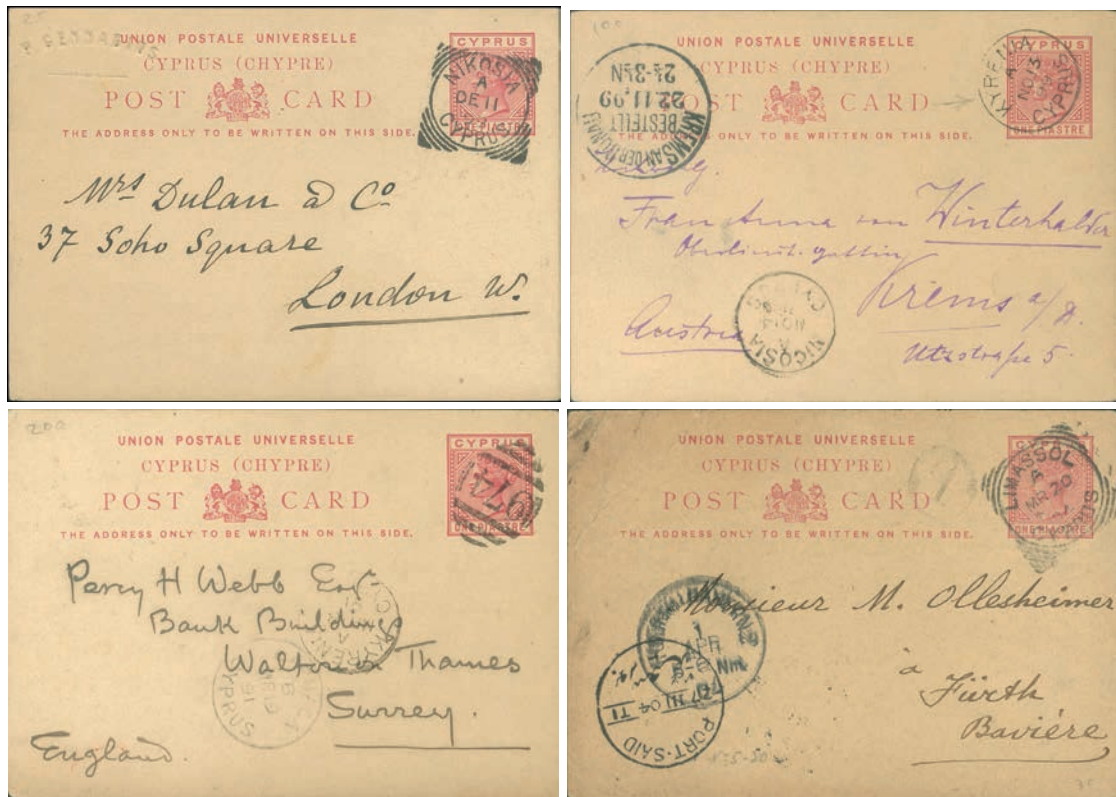 25
UNION POSTALE UNIVERSELLE
CYPRUS (CHYPRE)
POST CARD
THE ADDRESS ONLY TO BE WRITTEN ON THIS SIDE.
CYPRUS
NIKOSIA
A
DE 11
CYPRUS
Mrs Dulan à Co
37 Soho Square
London W.
100
UNION POSTALE UNIVERSELLE
CYPRUS (CHYPRE)
POST CARD
THE ADDRESS ONLY TO BE WRITTEN ON THIS SIDE.
CYPRUS
ONE PIASTRE
KYRENIA
A
NO 13
99
CYPRUS
KREMS AN DER DONAU
BESTELLT
22.11.99
2½-3½N
Frau Anna von Winterhalder
Krems a/D.
Austria
Utzstraße 5.
NICOSIA
A
NO 14
CYPRUS
200
UNION POSTALE UNIVERSELLE
CYPRUS (CHYPRE)
POST CARD
THE ADDRESS ONLY TO BE WRITTEN ON THIS SIDE.
CYPRUS
ONE PIASTRE
974
Percy H Webb Esqr
Bank Buildings
Walton on Thames
Surrey.
England.
KYRENIA
CYPRUS
UNION POSTALE UNIVERSELLE
CYPRUS (CHYPRE)
POST CARD
THE ADDRESS ONLY TO BE WRITTEN ON THIS SIDE.
ONE PIASTRE
LIMASSOL
A
MR 20
CYPRUS
Monsieur M. Ollesheimer
à
Fürth
Bavière
1
APR
5-6 Nm
04
PORT-SAID
27 III 04 TI